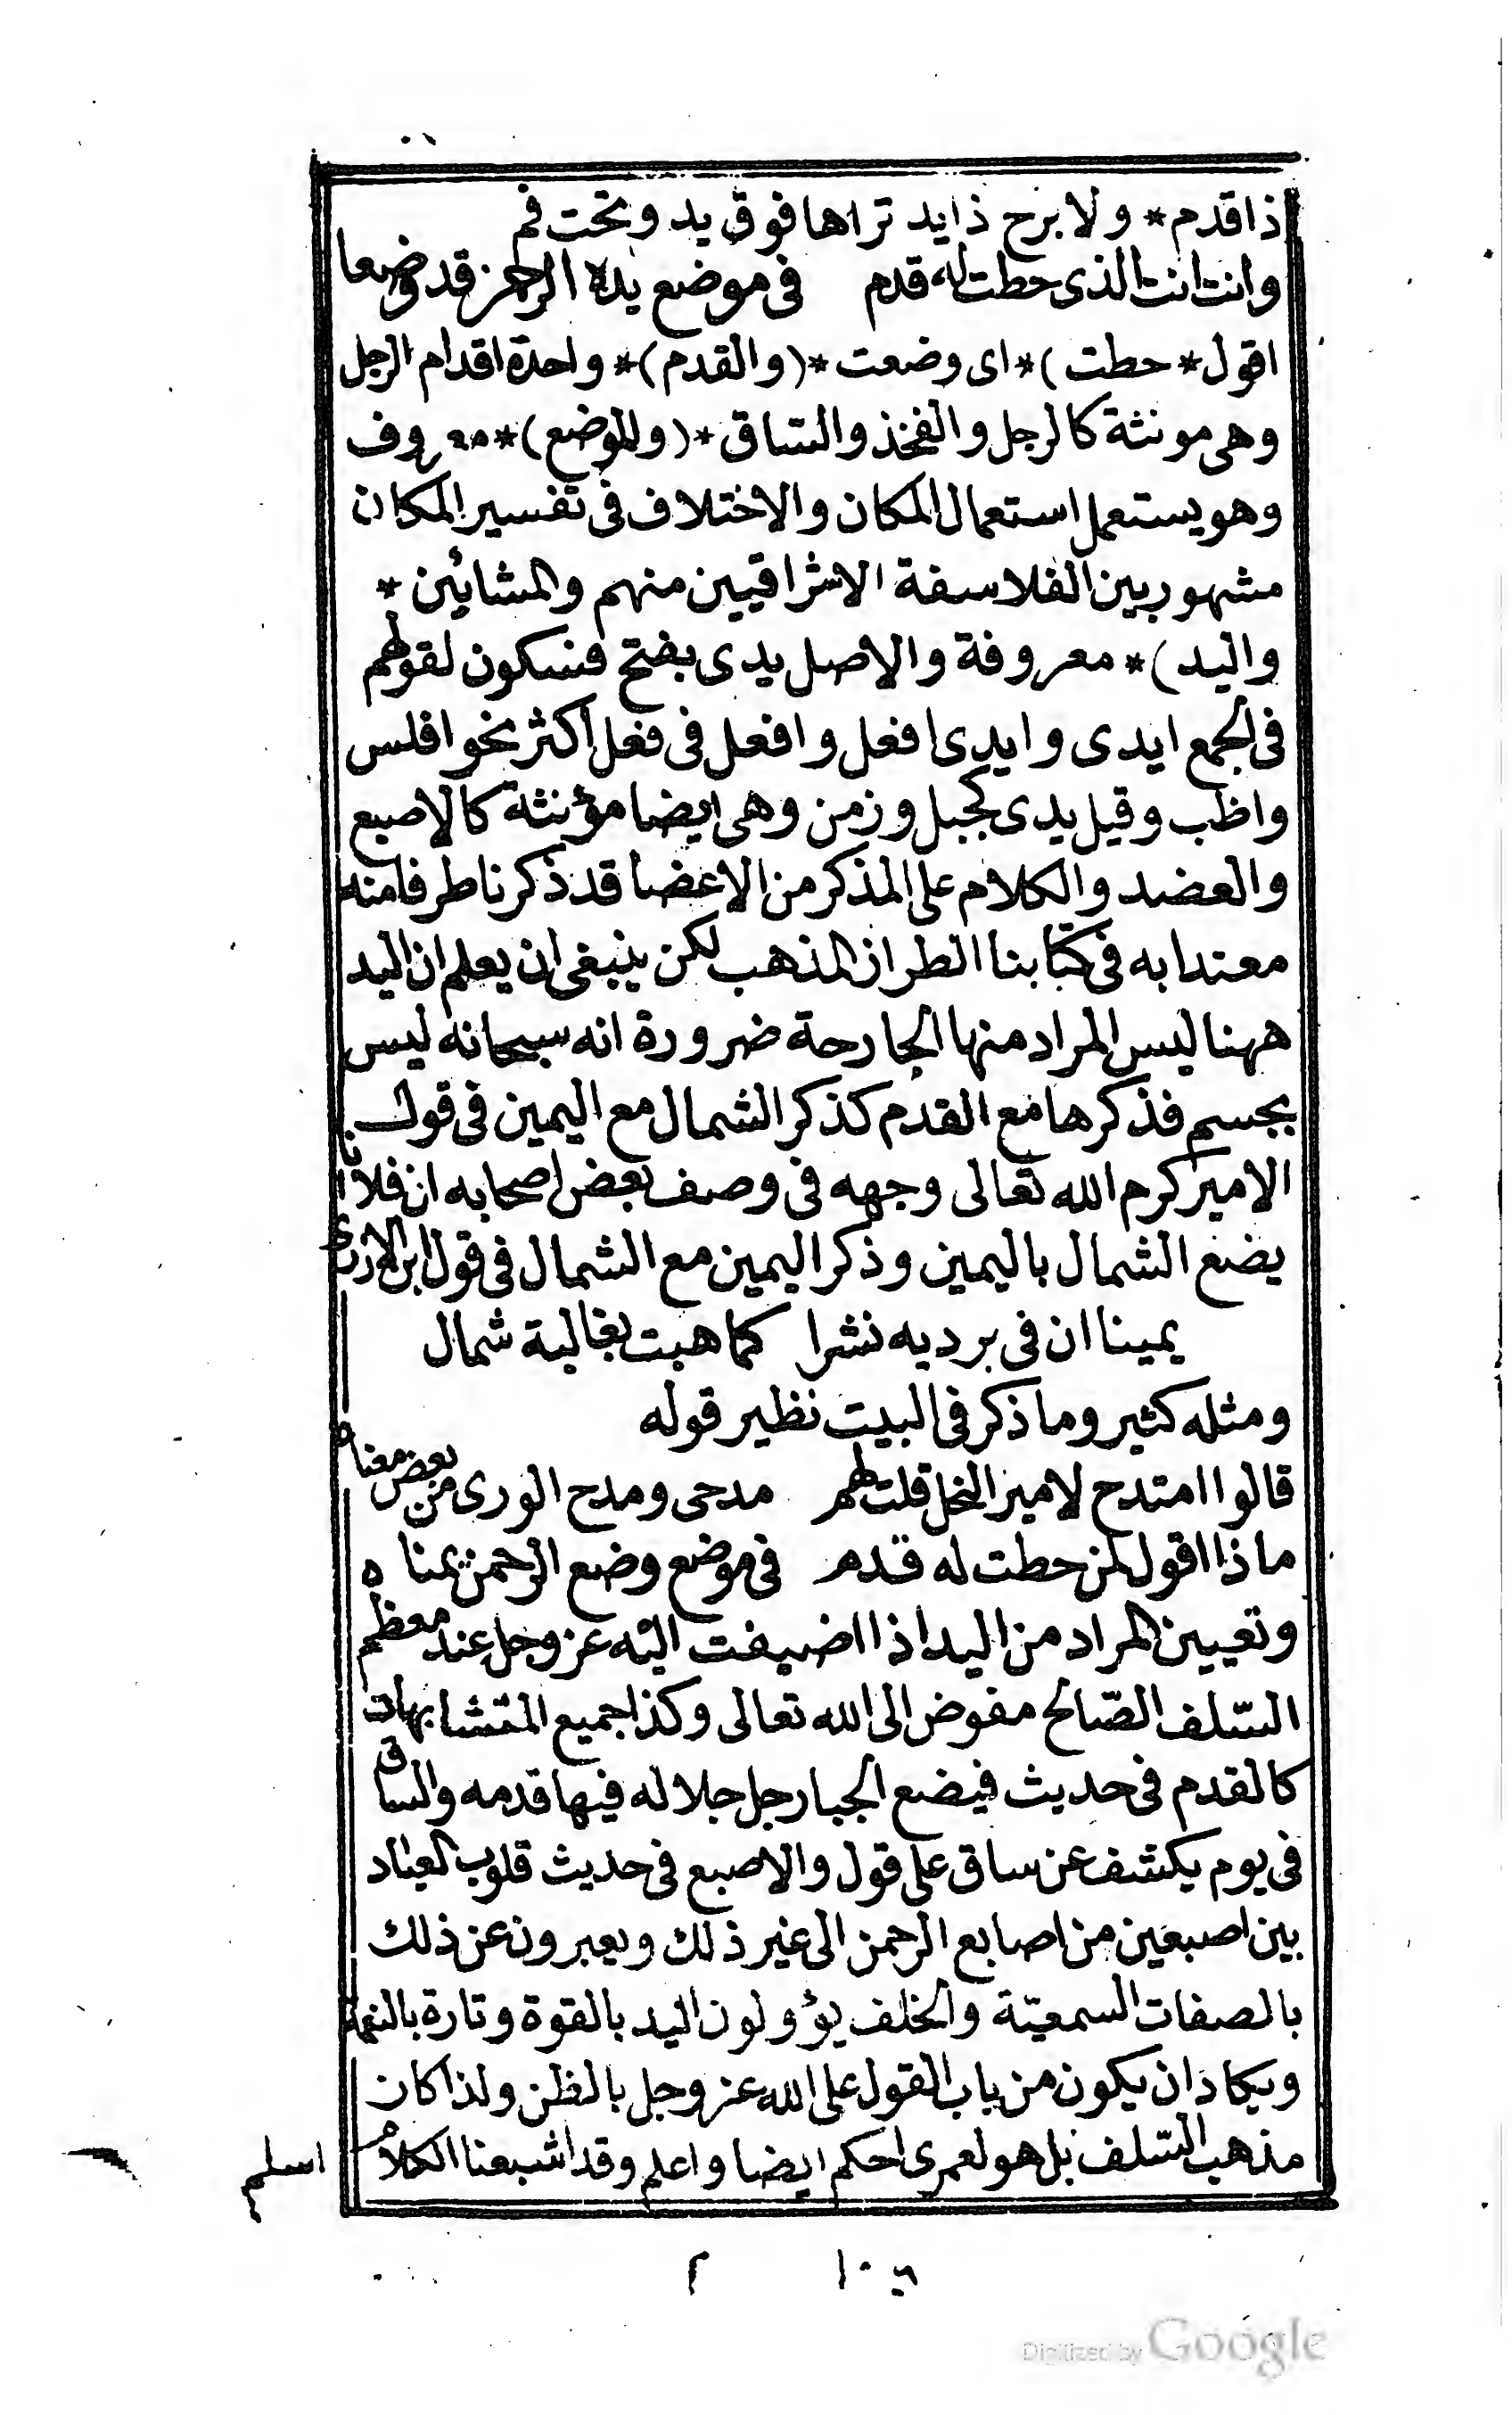 ذا قدم * ولا برح ذا يد تراها فوق يد وتحت فم
وانت انت الذى حطت له قدم في موضع يده الرحمن قد وضعا
اقول * حطت) * اى وضعت * (والقدم) * واحدة اقدام الرجل
وهى مونثة كالرجل والفخذ والساق * (والموضع) * معروف
وهو يستعمل استعمال المكان والاختلاف فى تفسير المكان
مشهور بين الفلاسفة الاشراقيين منهم والمشائين *
واليد) * معروفة والاصل يدى بفتح فسكون لقولهم
فى الجمع ايدى وايدى افعل وافعل فى فعل اكثر نحو افلس
واظب وقيل يدى كجبل وزمن وهى ايضا مؤنثة كالاصبع
والعضد والكلام على المذكر من الاعضا قد ذكرنا طرفا منه
معتدا به فى كتابنا الطراز المذهب لكن ينبغى ان يعلم ان اليد
ههنا ليس المراد منها الجارحة ضرورة انه سبحانه ليس
بجسم فذكرها مع القدم كذكر الشمال مع اليمين فى قول
الامير كرم الله تعالى وجهه فى وصف بعض اصحابه ان فلانا
يضع الشمال باليمين وذكر اليمين مع الشمال فى قول ابن الازرى
يمينا ان فى برديه نشرا كما هبت بغالية شمال
ومثله كثير وما ذكر فى البيت نظير قوله
قالوا امتدح لامير النحل قلت لهم مدحى ومدح الورى من بعض معناه
ماذا اقول لمن حطت له قدم فى موضع وضع الرحمن يمناه
وتعيين المراد من اليد اذا اضيفت اليه عز وجل عند معظم
السلف الصالح مفوض الى الله تعالى وكذا جميع المتشابهات
كالقدم فى حديث فيضع الجبار جل جلاله فيها قدمه والساق
فى يوم يكشف عن ساق على قول والاصبع فى حديث قلوب العباد
بين اصبعين من اصابع الرحمن الى غير ذلك ويعبرون عن ذلك
بالصفات السمعية والخلف يؤولون اليد بالقوة وتارة بالنعمة
ويكاد ان يكون من باب القول على الله عز وجل بالظن ولذا كان
مذهب السلف اسلم بل هو لعمرى احكم ايضا واعلم وقد اشبعنا الكلام
١٠٦ ٢
Digitized by Google